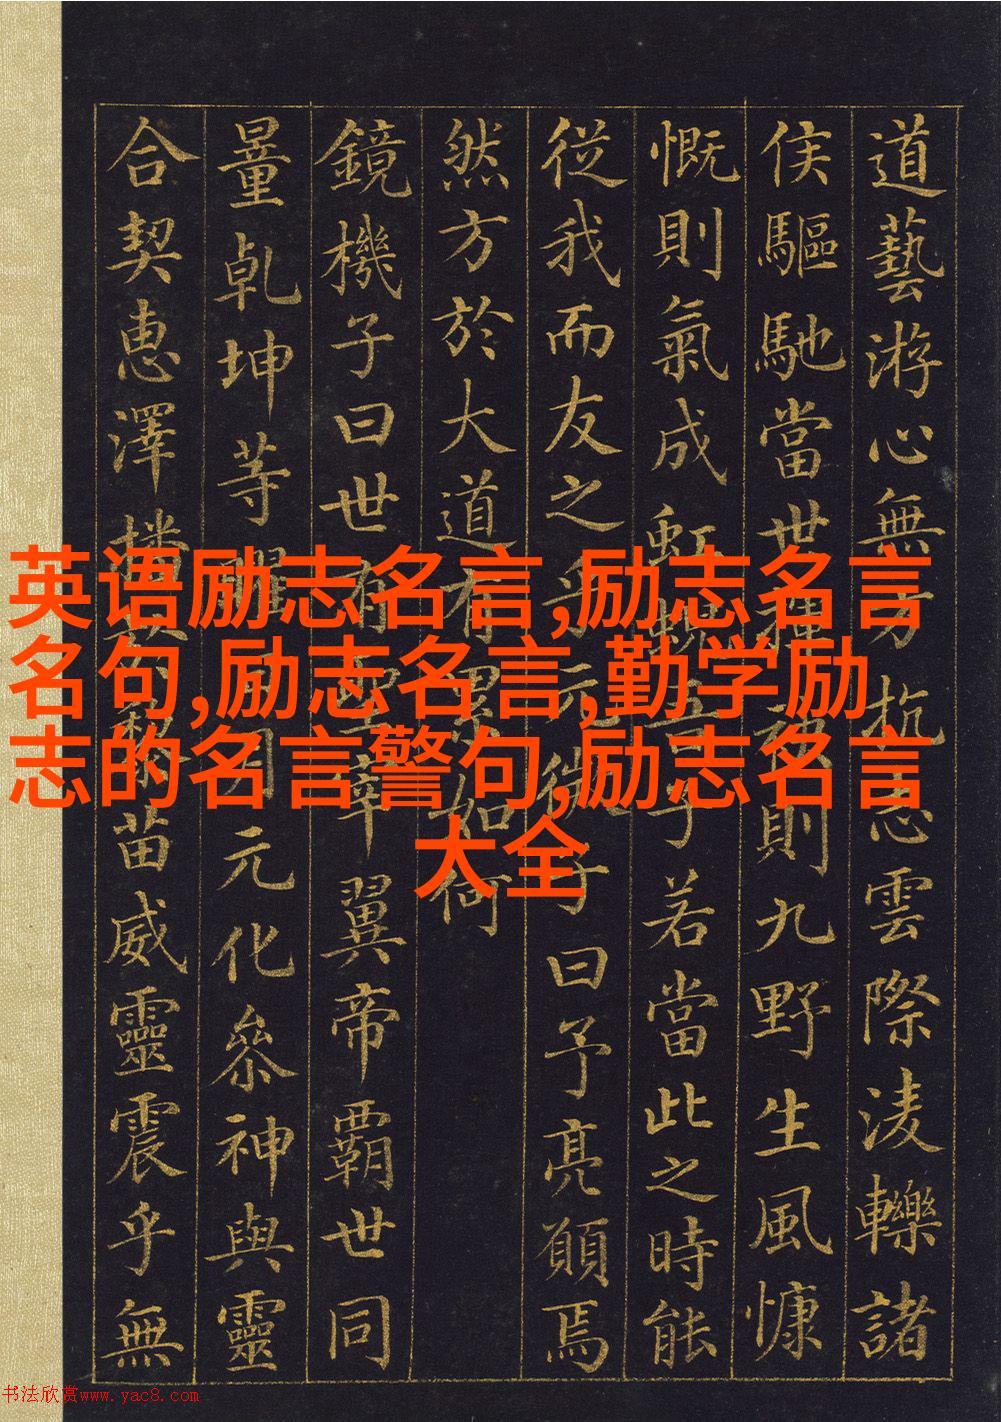 道藝游心無方抗志雲際淩轢諸
侯驅馳當世揮袂則九野生風慷
慨則氣成虹蜺吾子若當此之時能
從我而友之乎玄微子曰予亮願焉
然方於大道有累如何
鏡機子曰世有聖宰翼帝霸世同
量乾坤等曜日月元化參神與靈
合契惠澤播於黎苗威靈震乎無
英语励志名言,励志名言
名句,励志名言,勤学励
志的名言警句,励志名言
大全
书法欣赏www.yac8.com